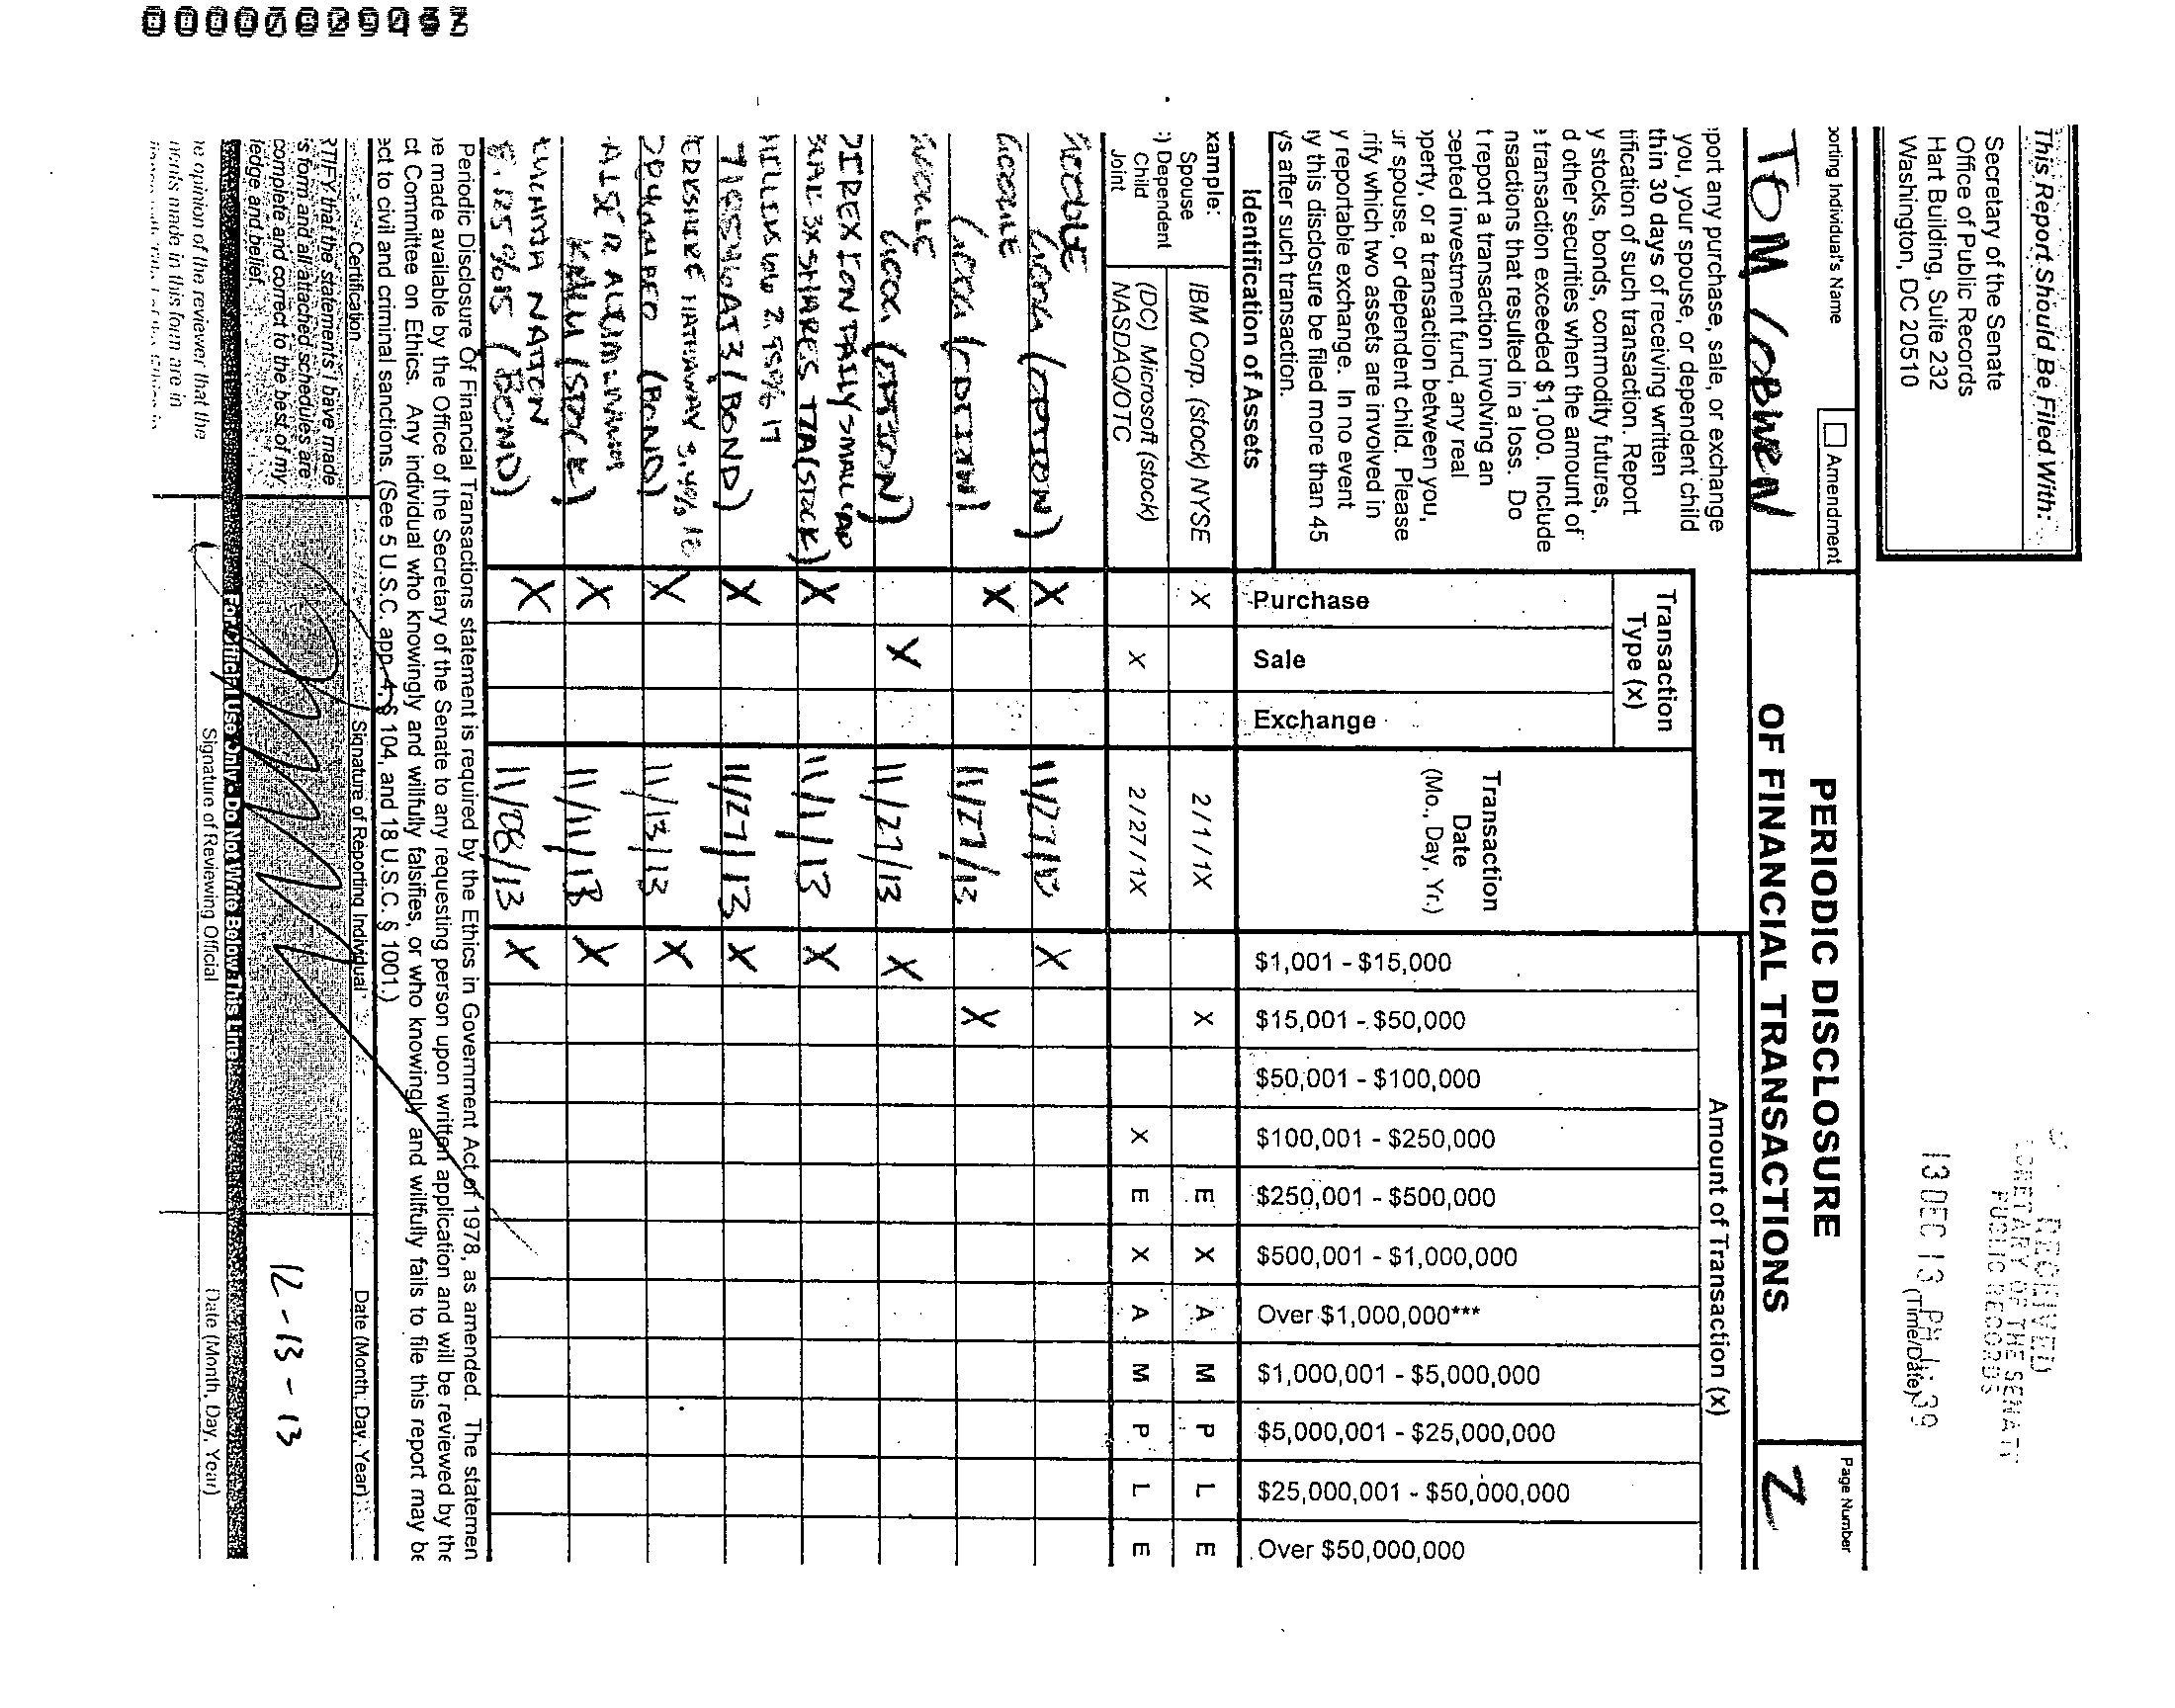 This Report Should Be Filed With:
Secretary of the Senate
Office of Public Records
Hart Building, Suite 232
Washington, DC 20510
SECRETARY OF THE SENATE
PUBLIC RECORDS
13 DEC 13 PM
(Time/Date)
orting Individual's Name
Amendment
TOM COBURN
PERIODIC DISCLOSURE
OF FINANCIAL TRANSACTIONS
Page Number
2
port any purchase, sale, or exchange
you, your spouse, or dependent child
thin 30 days of receiving written
tification of such transaction. Report
y stocks, bonds, commodity futures,
d other securities when the amount of
transaction exceeded $1,000. Include
nsactions that resulted in a loss. Do
t report a transaction involving an
cepted investment fund, any real
perty, or a transaction between you,
ur spouse, or dependent child. Please
rify which two assets are involved in
y reportable exchange. In no event
y this disclosure be filed more than 45
ys after such transaction.
Identification of Assets
Transaction
Type (x)
Purchase
Sale
Exchange
Transaction
Date
(Mo., Day, Yr.)
Amount of Transaction (x)
$1,001 - $15,000
$15,001 - $50,000
$50,001 - $100,000
$100,001 - $250,000
$250,001 - $500,000
$500,001 - $1,000,000
Over $1,000,000***
$1,000,001 - $5,000,000
$5,000,001 - $25,000,000
$25,000,001 - $50,000,000
Over $50,000,000
xample:
Spouse
) Dependent
Child
Joint
IBM Corp. (stock) NYSE X 2/1/1X X E X A M P L E
(DC) Microsoft (stock)
NASDAQ/OTC X 2/27/1X X E X A M P L E
GOOGLE
(OPTION) X 11/27/13 X
GOOGLE
X 11/27/13 X
GOOGLE
GOOG (OPTION) X 11/27/13 X
DIREXION DAILY SMALL CAP
BEAR 3X SHARES TZA (STOCK) X 11/1/13 X
17
(BOND) X 11/27/13 X
HATHAWAY
(BOND) X 11/13/13 X
KAISER ALUMINUM
KALU (STOCK) X 11/11/13 X
NATION
8.125% 15 (BOND) X 11/08/13 X
Periodic Disclosure Of Financial Transactions statement is required by the Ethics in Government Act of 1978, as amended. The statemen
e made available by the Office of the Secretary of the Senate to any requesting person upon written application and will be reviewed by the
ct Committee on Ethics. Any individual who knowingly and willfully falsifies, or who knowingly and willfully fails to file this report may be
ect to civil and criminal sanctions. (See 5 U.S.C. app. 4, § 104, and 18 U.S.C. § 1001.)
Certification
Signature of Reporting Individual
Date (Month, Day, Year)
RTIFY that the statements I have made
s form and all attached schedules are
complete and correct to the best of my
ledge and belief.
12-13-13
For Official Use Only - Do Not Write Below This Line
e opinion of the reviewer that the
ments made in this form are in
Signature of Reviewing Official
Date (Month, Day, Year)